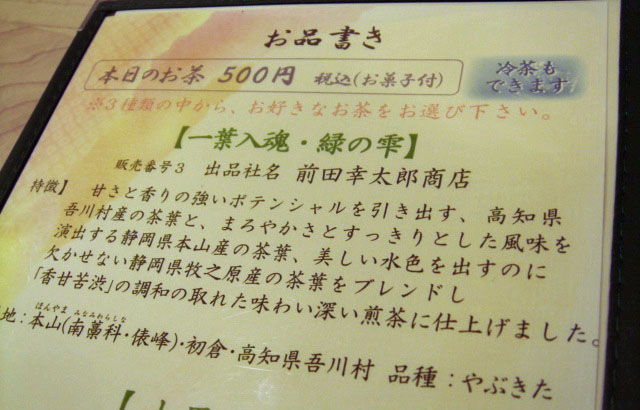 お品書き
本日のお茶 500円 税込(お菓子付)
冷茶も
できます
※3種類の中から、お好きなお茶をお選び下さい。
【一葉入魂・緑の雫】
販売番号3 出品社名 前田幸太郎商店
特徴】 甘さと香りの強いポテンシャルを引き出す、高知県
吾川村産の茶葉と、まろやかさとすっきりとした風味を
演出する静岡県本山産の茶葉、美しい水色を出すのに
欠かせない静岡県牧之原産の茶葉をブレンドし
「香甘苦渋」の調和の取れた味わい深い煎茶に仕上げました。
ほんやま みなみわらしな
地:本山(南藁科・俵峰)・初倉・高知県吾川村 品種:やぶきた